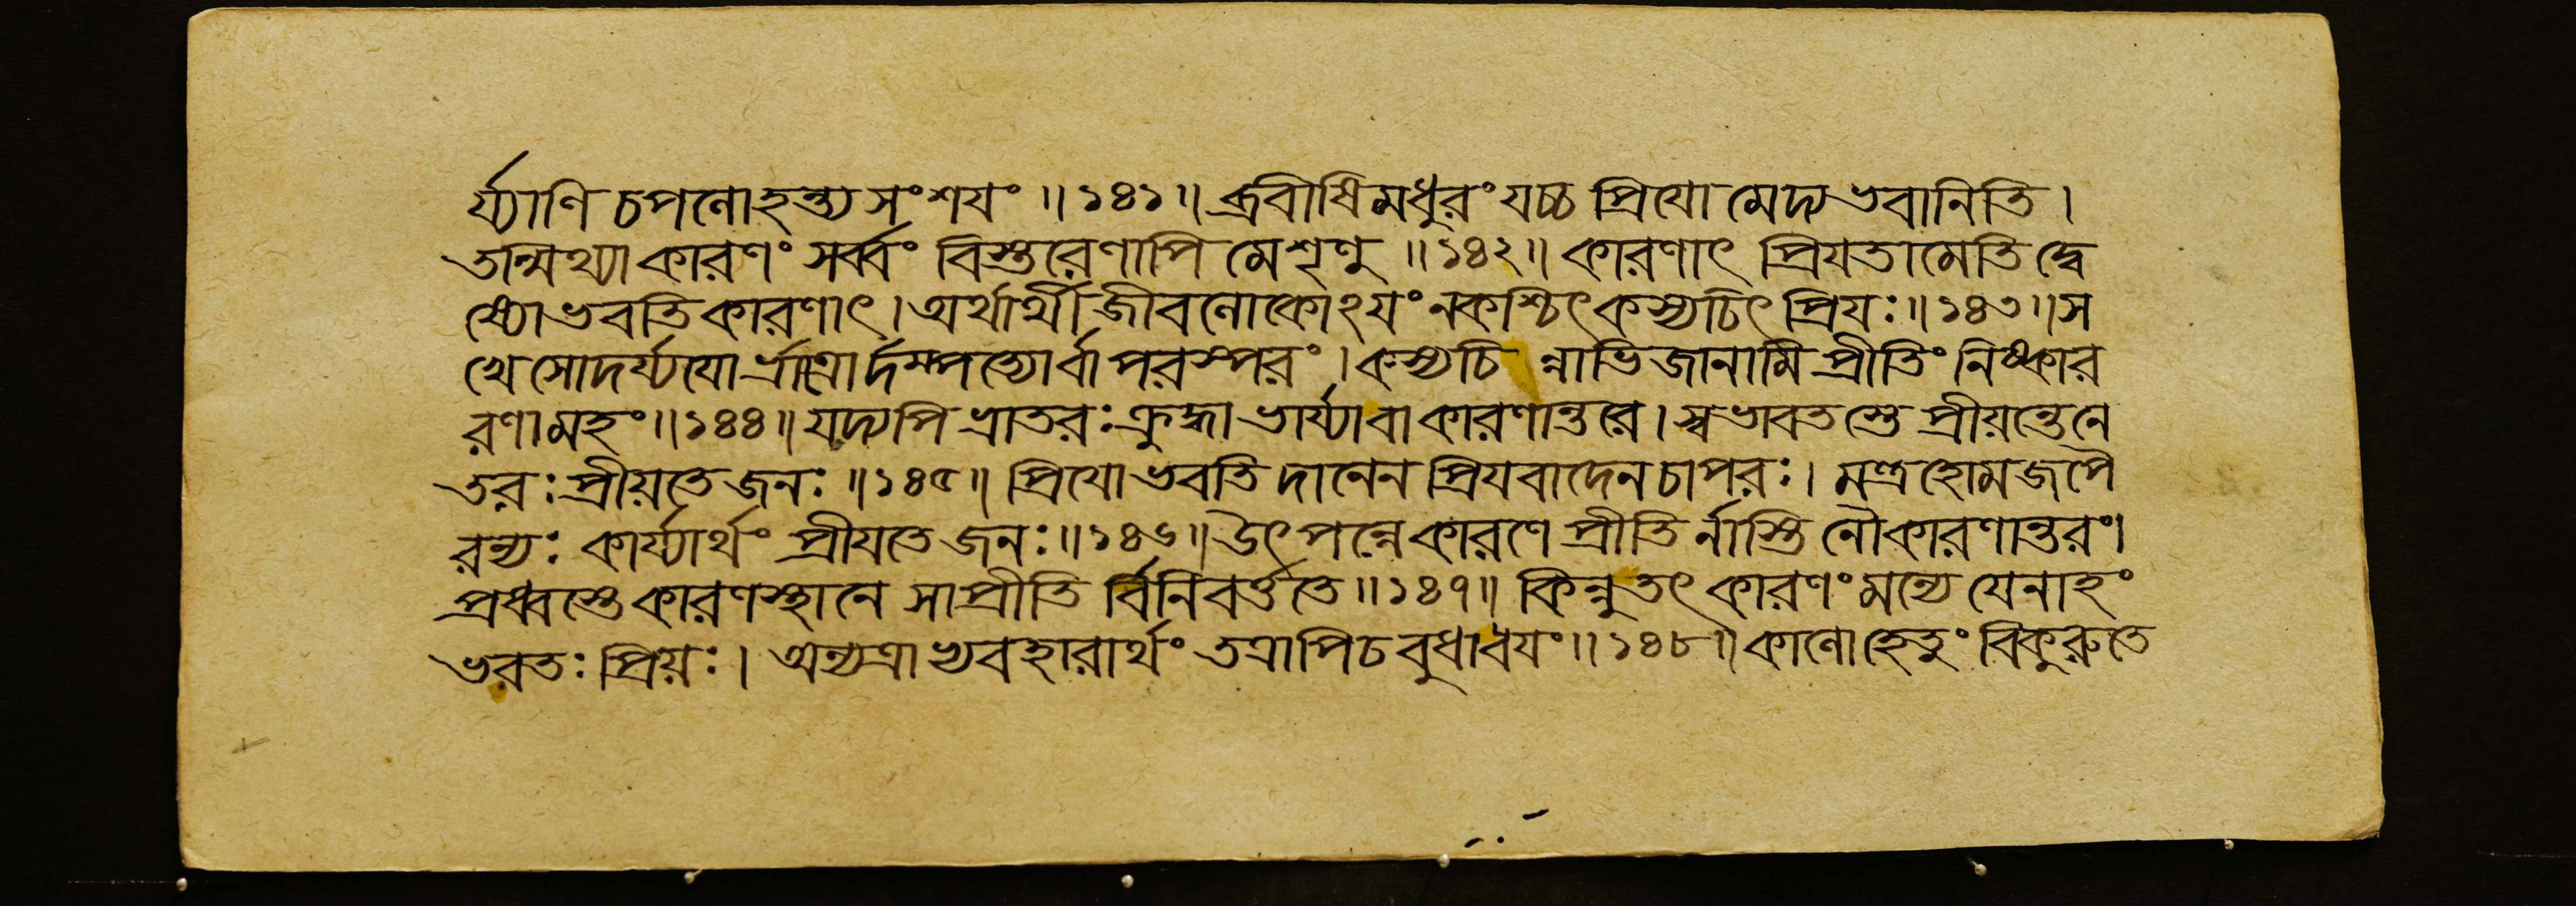 র্য্যাণি চপনোহন্ত্য সংশযং ॥ ১৪১ ॥ ব্রবীষি মধুরং যচ্চ প্রিযো মেদ্য ভবানিতি ।
তন্মিথ্যা কারণং সর্ব্বং বিস্তরেণাপি মেশৃণু ॥ ১৪২ ॥ কারণাৎ প্রিযতামেতি দ্বে
ষ্যো ভবতি কারণাৎ । অর্থার্থী জীবনোকোঽযং ন কশ্চিৎ কস্যচিৎ প্রিযঃ ॥ ১৪৩ ॥ স
খে সোদর্য্যযো র্ভ্রাত্রো র্দম্পত্যোর্বা পরস্পরং । কস্যচি ন্নাভিজানামি প্রীতিং নিষ্কার
রণামহং ॥ ১৪৪ ॥ যদ্যপি ভ্রাতরঃ ক্রুদ্ধা ভার্য্যা বা কারণান্তরে । স্বভাবতস্তে প্রীয়ন্তে নে
তরঃ প্রীয়তে জনঃ ॥ ১৪৫ ॥ প্রিযো ভবতি দানেন প্রিযবাদেন চাপরঃ । মন্ত্রহোমজপৈ
রন্যঃ কার্য্যার্থং প্রীযতে জনঃ ॥ ১৪৬ ॥ উৎপন্নে কারণে প্রীতি র্নাস্তি নৌ কারণান্তরং ।
প্রধ্বস্তে কারণস্থানে সাপ্রীতি র্বিনিবর্ত্ততে ॥ ১৪৭ ॥ কিন্নু তৎ কারণং মন্যে যেনাহং
ভবতঃ প্রিয়ঃ । অন্যত্রাভ্যবহারার্থং তত্রাপি চ বুধাবযং ॥ ১৪৮ ॥ কানো হেতুং বিকুরুতে